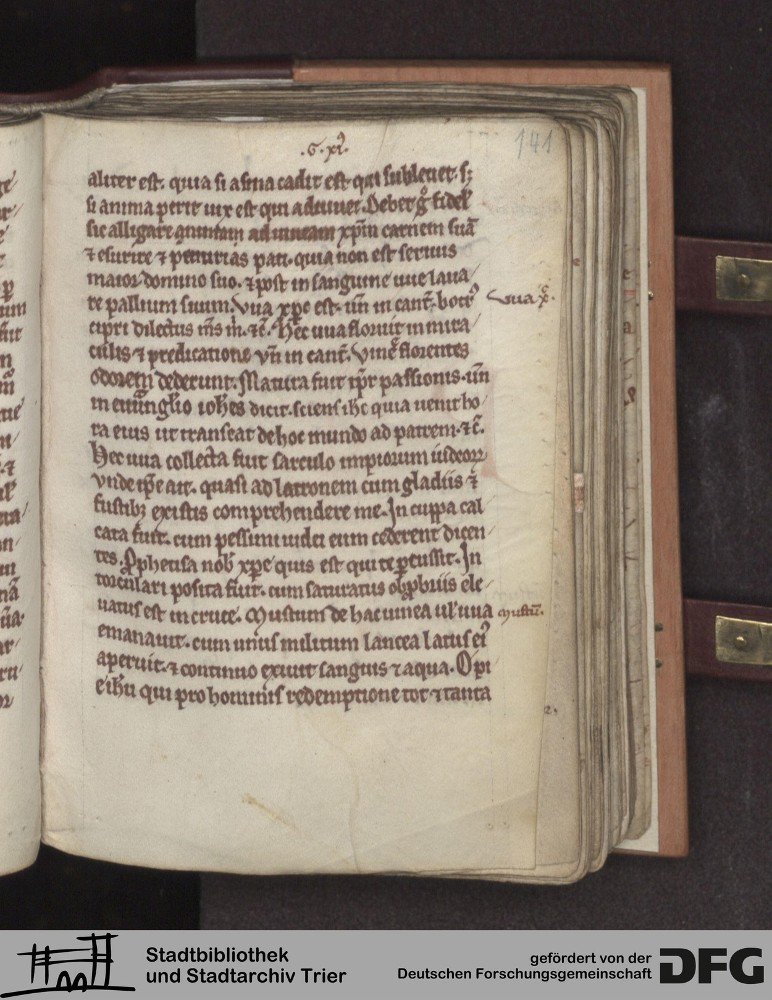 .G. xi.
141
aliter est. quia si asina cadit est qui subleuet. s;
si anima perit uix est qui adiuuet. Debet gͦ fidel'
sic alligare animam ad uineam xp̄m carnem suā
⁊ esurire ⁊ penurias pati. quia non est seruus
maior domino suo. ⁊ post in sanguine uue laua
re pallium suum. Vua xp̄c est. uñ in cant̄. botrꝰ
uua xͨ.
cipri dilectus m̄s m̄. ⁊c̄. Hec uua floruit in mira
culis ⁊ predicatione vñ in cant̄. Vineę florentes
odorem dederunt. Matura fuit tp̄r passionis. uñ
in euuāglio ioh̄es dicit. sciens ih̄c quia uenit ho
ra eius ut transeat de hoc mundo ad patrem. ⁊c̄.
Hec uua collecta fuit sarculo impiorum iudeoꝝ
vnde ip̄e ait. quasi ad latronem cum gladiis ⁊
fustibꝫ existis comprehendere me. In cuppa cal
cata fuit. cum pessimi iudei eum cederent dicen
tes. Prophetisa nob̄ xp̄e quis est qui te ꝑcussit. In
torculari posita fuit. cum saturatus obꝓbriis ele
uatus est in cruce. Mustum de hac uinea ul' uua
mustū.
emanauit. cum unus militum lancea latus eiꝰ
aperuit. ⁊ continuo exiuit sanguis ⁊ aqua. O pi
e ih̄u qui pro hominis redemptione tot ⁊ tanta
Stadtbibliothek
und Stadtarchiv Trier
gefördert von der
Deutschen Forschungsgemeinschaft
DFG